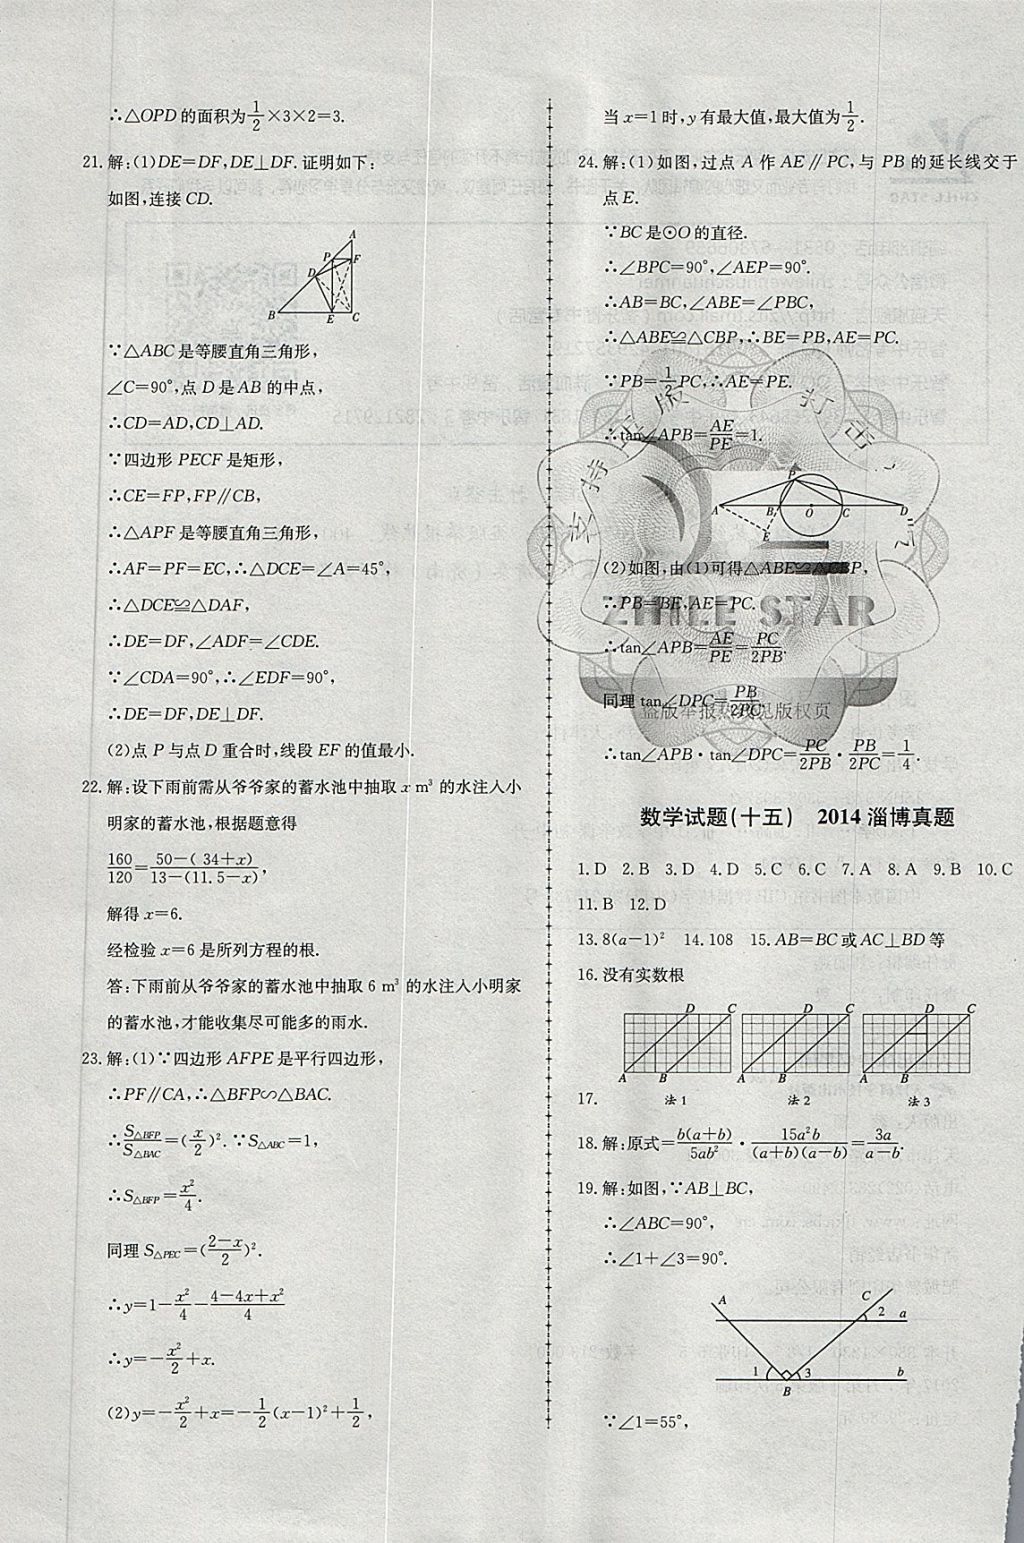 ∴△OPD的面积为1/2×3×2=3.
21.解:(1)DE=DF,DE⊥DF.证明如下:
如图,连接CD.
A
P F
D
B E C
∵△ABC是等腰直角三角形,
∠C=90°,点D是AB的中点,
∴CD=AD,CD⊥AD.
∵四边形PECF是矩形,
∴CE=FP,FP∥CB,
∴△APF是等腰直角三角形,
∴AF=PF=EC,∴∠DCE=∠A=45°,
∴△DCE≌△DAF,
∴DE=DF,∠ADF=∠CDE.
∵∠CDA=90°,∴∠EDF=90°,
∴DE=DF,DE⊥DF.
(2)点P与点D重合时,线段EF的值最小.
22.解:设下雨前需从爷爷家的蓄水池中抽取x m³的水注入小
明家的蓄水池,根据题意得
160/120=50-(34+x)/13-(11.5-x),
解得x=6.
经检验x=6是所列方程的根.
答:下雨前从爷爷家的蓄水池中抽取6 m³的水注入小明家
的蓄水池,才能收集尽可能多的雨水.
23.解:(1)∵四边形AFPE是平行四边形,
∴PF∥CA,∴△BFP∽△BAC.
∴S△BFP/S△BAC=(x/2)².∵S△ABC=1,
∴S△BFP=x²/4.
同理S△PEC=(2-x/2)².
∴y=1-x²/4-4-4x+x²/4
∴y=-x²/2+x.
(2)y=-x²/2+x=-1/2(x-1)²+1/2,
当x=1时,y有最大值,最大值为1/2.
24.解:(1)如图,过点A作AE∥PC,与PB的延长线交于
点E.
∵BC是⊙O的直径.
∴∠BPC=90°,∠AEP=90°.
∴AB=BC,∠ABE=∠PBC,
∴△ABE≌△CBP,∴BE=PB,AE=PC.
∵PB=1/2PC,∴AE=PE.
∴tan∠APB=AE/PE=1.
P
A B O C D
E
(2)如图,由(1)可得△ABE≌△CBP,
∴PB=BE,AE=PC.
ZHILE STAR
∴tan∠APB=AE/PE=PC/2PB.
同理tan∠DPC=PB/2PC.
盗版举报热线见版权页
∴tan∠APB·tan∠DPC=PC/2PB·PB/2PC=1/4.
数学试题(十五) 2014淄博真题
1.D 2.B 3.D 4.D 5.C 6.C 7.A 8.A 9.B 10.C
11.B 12.D
13.8(a-1)² 14.108 15.AB=BC或AC⊥BD等
16.没有实数根
D C D C D C
A B A B A B
17. 法1 法2 法3
18.解:原式=b(a+b)/5ab²·15a²b/(a+b)(a-b)=3a/a-b.
19.解:如图,∵AB⊥BC,
∴∠ABC=90°,
∴∠1+∠3=90°.
A C 2 a
1 3 b
B
∵∠1=55°,